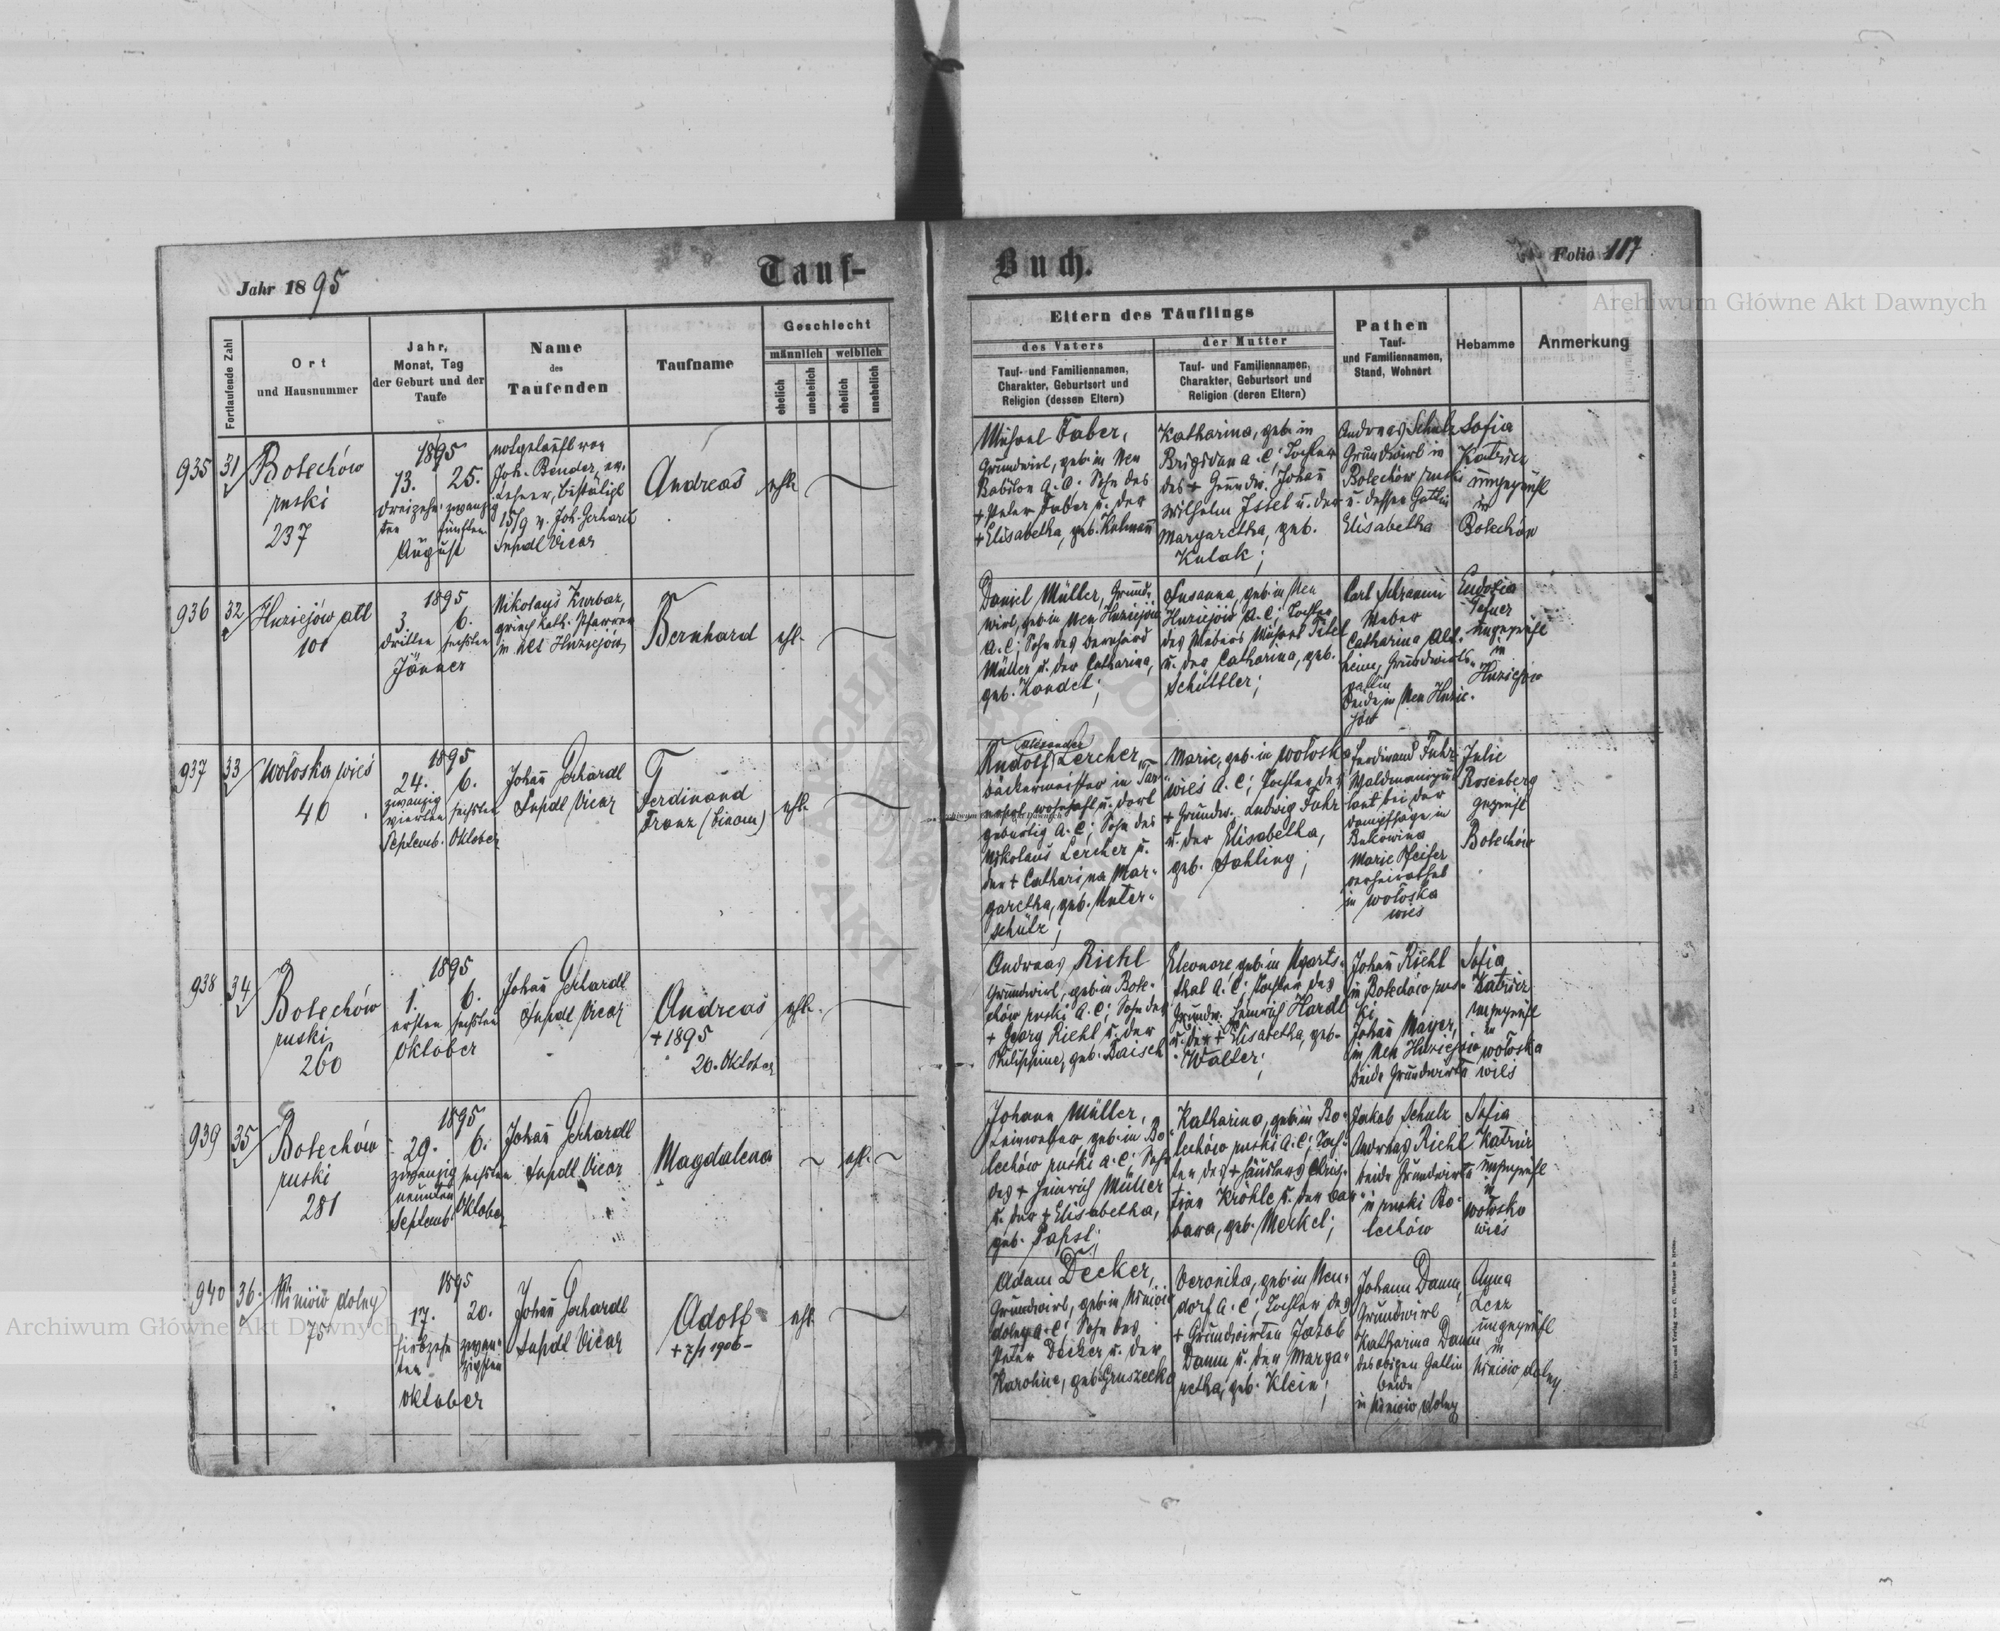 Jahr 1895
Tauf-
Buch.
Folio 117
Archiwum Główne Akt Dawnych
Fortlaufende Zahl
Ort
und Hausnummer
Jahr,
Monat, Tag
der Geburt und der
Taufe
Name
des
Taufenden
Taufname
Geschlecht
männlich
weiblich
ehelich
unehelich
ehelich
unehelich
Eltern des Täuflings
des Vaters
Tauf- und Familiennamen,
Charakter, Geburtsort und
Religion (dessen Eltern)
der Mutter
Tauf- und Familiennamen,
Charakter, Geburtsort und
Religion (deren Eltern)
Pathen
Tauf-
und Familiennamen,
Stand, Wohnort
Hebamme
Anmerkung
935
31
Bolechów
ruski
237
1895
13. 25.
dreizehn- zwanzig
ten fünften
August
notgetauft von
Joh. Bender, ev.
Lehrer, bestätigt
15/9 v. Joh. Gerhardt
Supdt Vicar
Andreas
ehl.
Michael Faber,
Grundwirt, geb. in Neu
Babilon A.C. Sohn des
+ Peter Faber u. der
+ Elisabetha, geb.
Katharina, geb. in
Brigidau A.C; Tochter
des + Grundw. Johann
Wilhelm Issel u. der
Margaretha, geb.
Kulak;
Andreas Schulz
Grundwirt in
Bolechów ruski
u. dessen Gattin
Elisabetha
Sofia
Katwicz
ungeprüft
in
Bolechów
936
32
Huziejów alt
101
1895
3. 6.
dritten sechsten
Jänner
Nikolaus Kurbas,
griech. kath. Pfarrer
in Alt Huziejów
Bernhard
ehl.
Daniel Müller, Grund-
wirt, geb. in Neu Huziejów
A.C; Sohn des Bernhard
Müller u. der Catharina,
geb. Kandel;
Susanna, geb. in Neu
Huziejów A.C; Tochter
des Webers Michael Titel
u. der Catharina, geb.
Schüttler;
Carl Schramm
Weber
Catharina Alt-
heim, Grundwirts-
gattin
beide in Neu Huzie-
jów
Eudoxia
ungeprüft
in
Huziejów
937
33
Wołoska wieś
40
1895
24. 6.
zwanzig
vierten sechsten
Septemb. Oktober
Johann Gerhardt
Supdt Vicar
Ferdinand
Franz
ehl.
Alexander
Rudolf Lercher,
Bäckermeister in Tar-
nopol wohnhaft u. dort
gebürtig A.C; Sohn des
Nikolaus Lercher u.
der + Catharina Mar-
garetha, geb. Unter-
schütz;
Marie, geb. in Wołoska
wieś A.C; Tochter des
+ Grundw. Ludwig Fuhr
u. der Elisabetha,
geb. Sahling;
Ferdinand Fuhr
bei der
Dampfsäge in
Bukowina
Marie Pfeifer
verheirathet
in Wołoska
wieś
Julie
Rosenberg
geprüft
Bolechów
938
34
Bolechów
ruski
260
1895
1. 6.
ersten sechsten
Oktober
Johann Gerhardt
Supdt Vicar
Andreas
+ 1895
20. Oktober
ehl.
Andreas Riehl
Grundwirt, geb. in Bole-
chów ruski A.C; Sohn des
+ Georg Riehl u. der
Philippine, geb. Daisch
Eleonore geb. in Ugarts-
thal A.C; Tochter des
Grundw. Heinrich Hardt
u. der + Elisabetha, geb.
Walter;
Johann Riehl
in Bolechów rus-
ki
Johann Mayer,
in Neu Huziejów
beide Grundwirte
Sofia
Katwicz
ungeprüft
in
Wołoska
wieś
939
35
Bolechów
ruski
281
1895
29. 6.
zwanzig sechsten
neunten
Septemb. Oktober
Johann Gerhardt
Supdt Vicar
Magdalena
ehl.
Johann Müller,
Leinweber geb. in Bo-
lechów ruski A.C; Sohn
des + Heinrich Müller
u. der + Elisabetha,
geb. Papst;
Katharina, geb. in Bo-
lechów ruski A.C; Toch-
ter des + Häuslers Chris-
tian Kröhle u. der Bar-
bara, geb. Merkel;
Jakob Schulz
Andreas Riehl
beide Grundwirte
in ruski Bo-
lechów
Sofia
Katwicz
ungeprüft
in
Wołoska
wieś
940
36.
Niniów dolny
75
1895
17. 20.
siebzehn- zwan-
ten zigsten
Oktober
Johann Gerhardt
Supdt Vicar
Adolf
+ 7/1 1906-
ehl.
Adam Decker,
Grundwirt, geb. in Niniów
dolny A.C; Sohn des
Peter Decker u. der
Karoline, geb. Gruszecka
Veronika, geb. in Neu-
dorf A.C; Tochter des
+ Grundwirten Jakob
Damm u. der Marga-
retha, geb. Klein;
Johann Damm,
Grundwirt
Katharina Damm
des obigen Gattin
beide
in Niniów dolny
Anna
Lenz
ungeprüft
in
Niniów dolny
Archiwum Główne Akt Dawnych